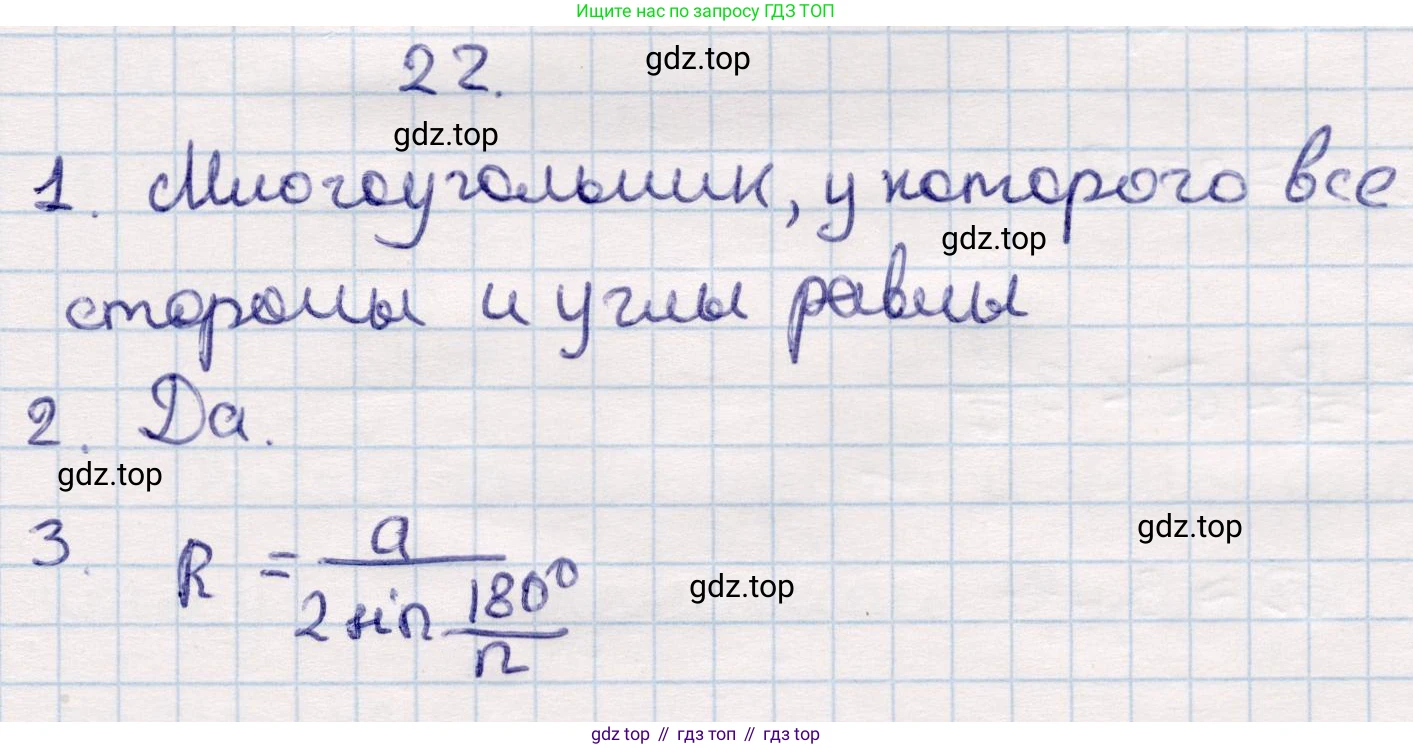 Ищите нас по запросу ГДЗ ТОП
22.
gdz.top
gdz.top
1. Многоугольник, у которого все
gdz.top
стороны и углы равны
2. Да.
gdz.top
3. R = a / (2 sin 180° / n)
gdz.top
gdz.top
gdz top // гдз топ // гдз top